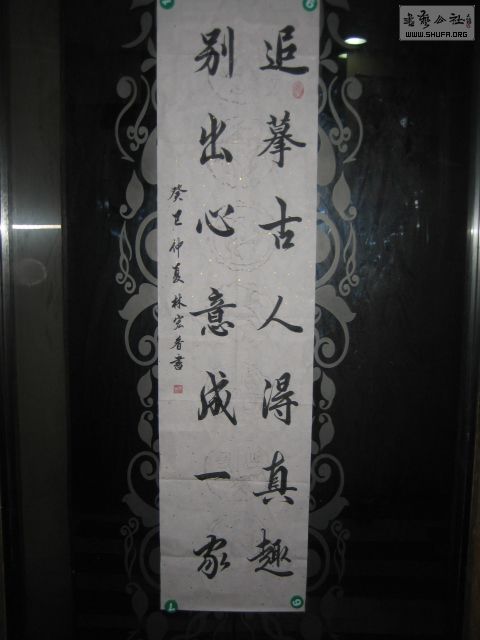 追摹古人得真趣
别出心意成一家
癸巳仲夏林宏香书
书艺公社
WWW.SHUFA.ORG